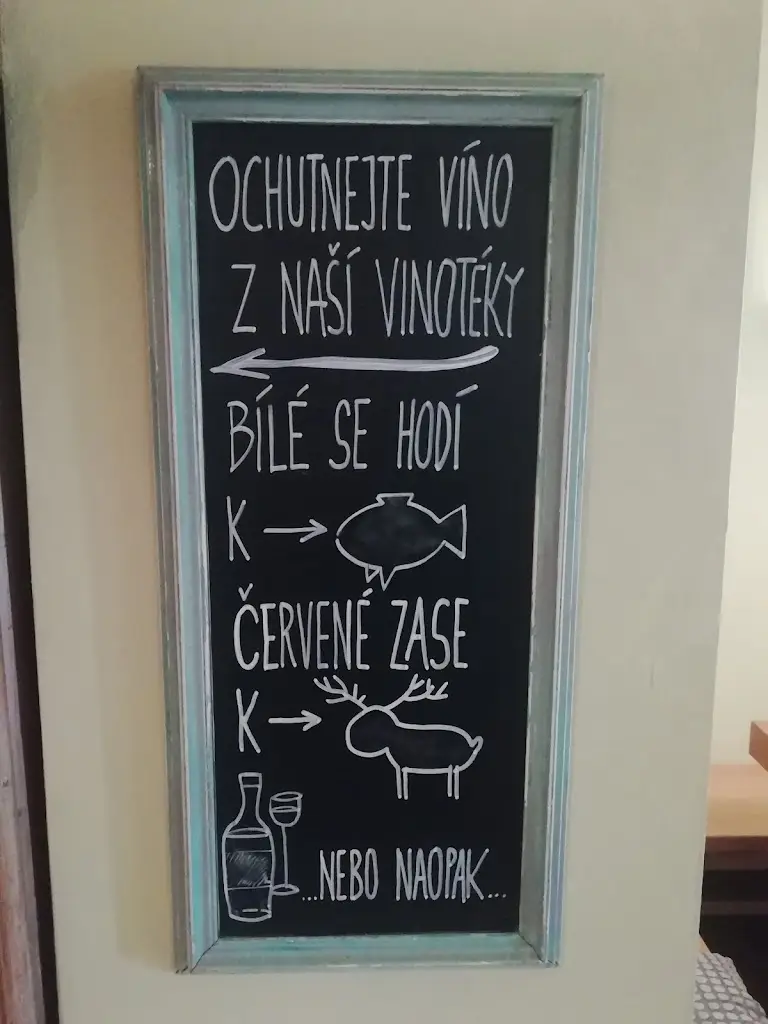 OCHUTNEJTE VÍNO
Z NAŠÍ VINOTÉKY
BÍLÉ SE HODÍ
K →
ČERVENÉ ZASE
K →
...NEBO NAOPAK...